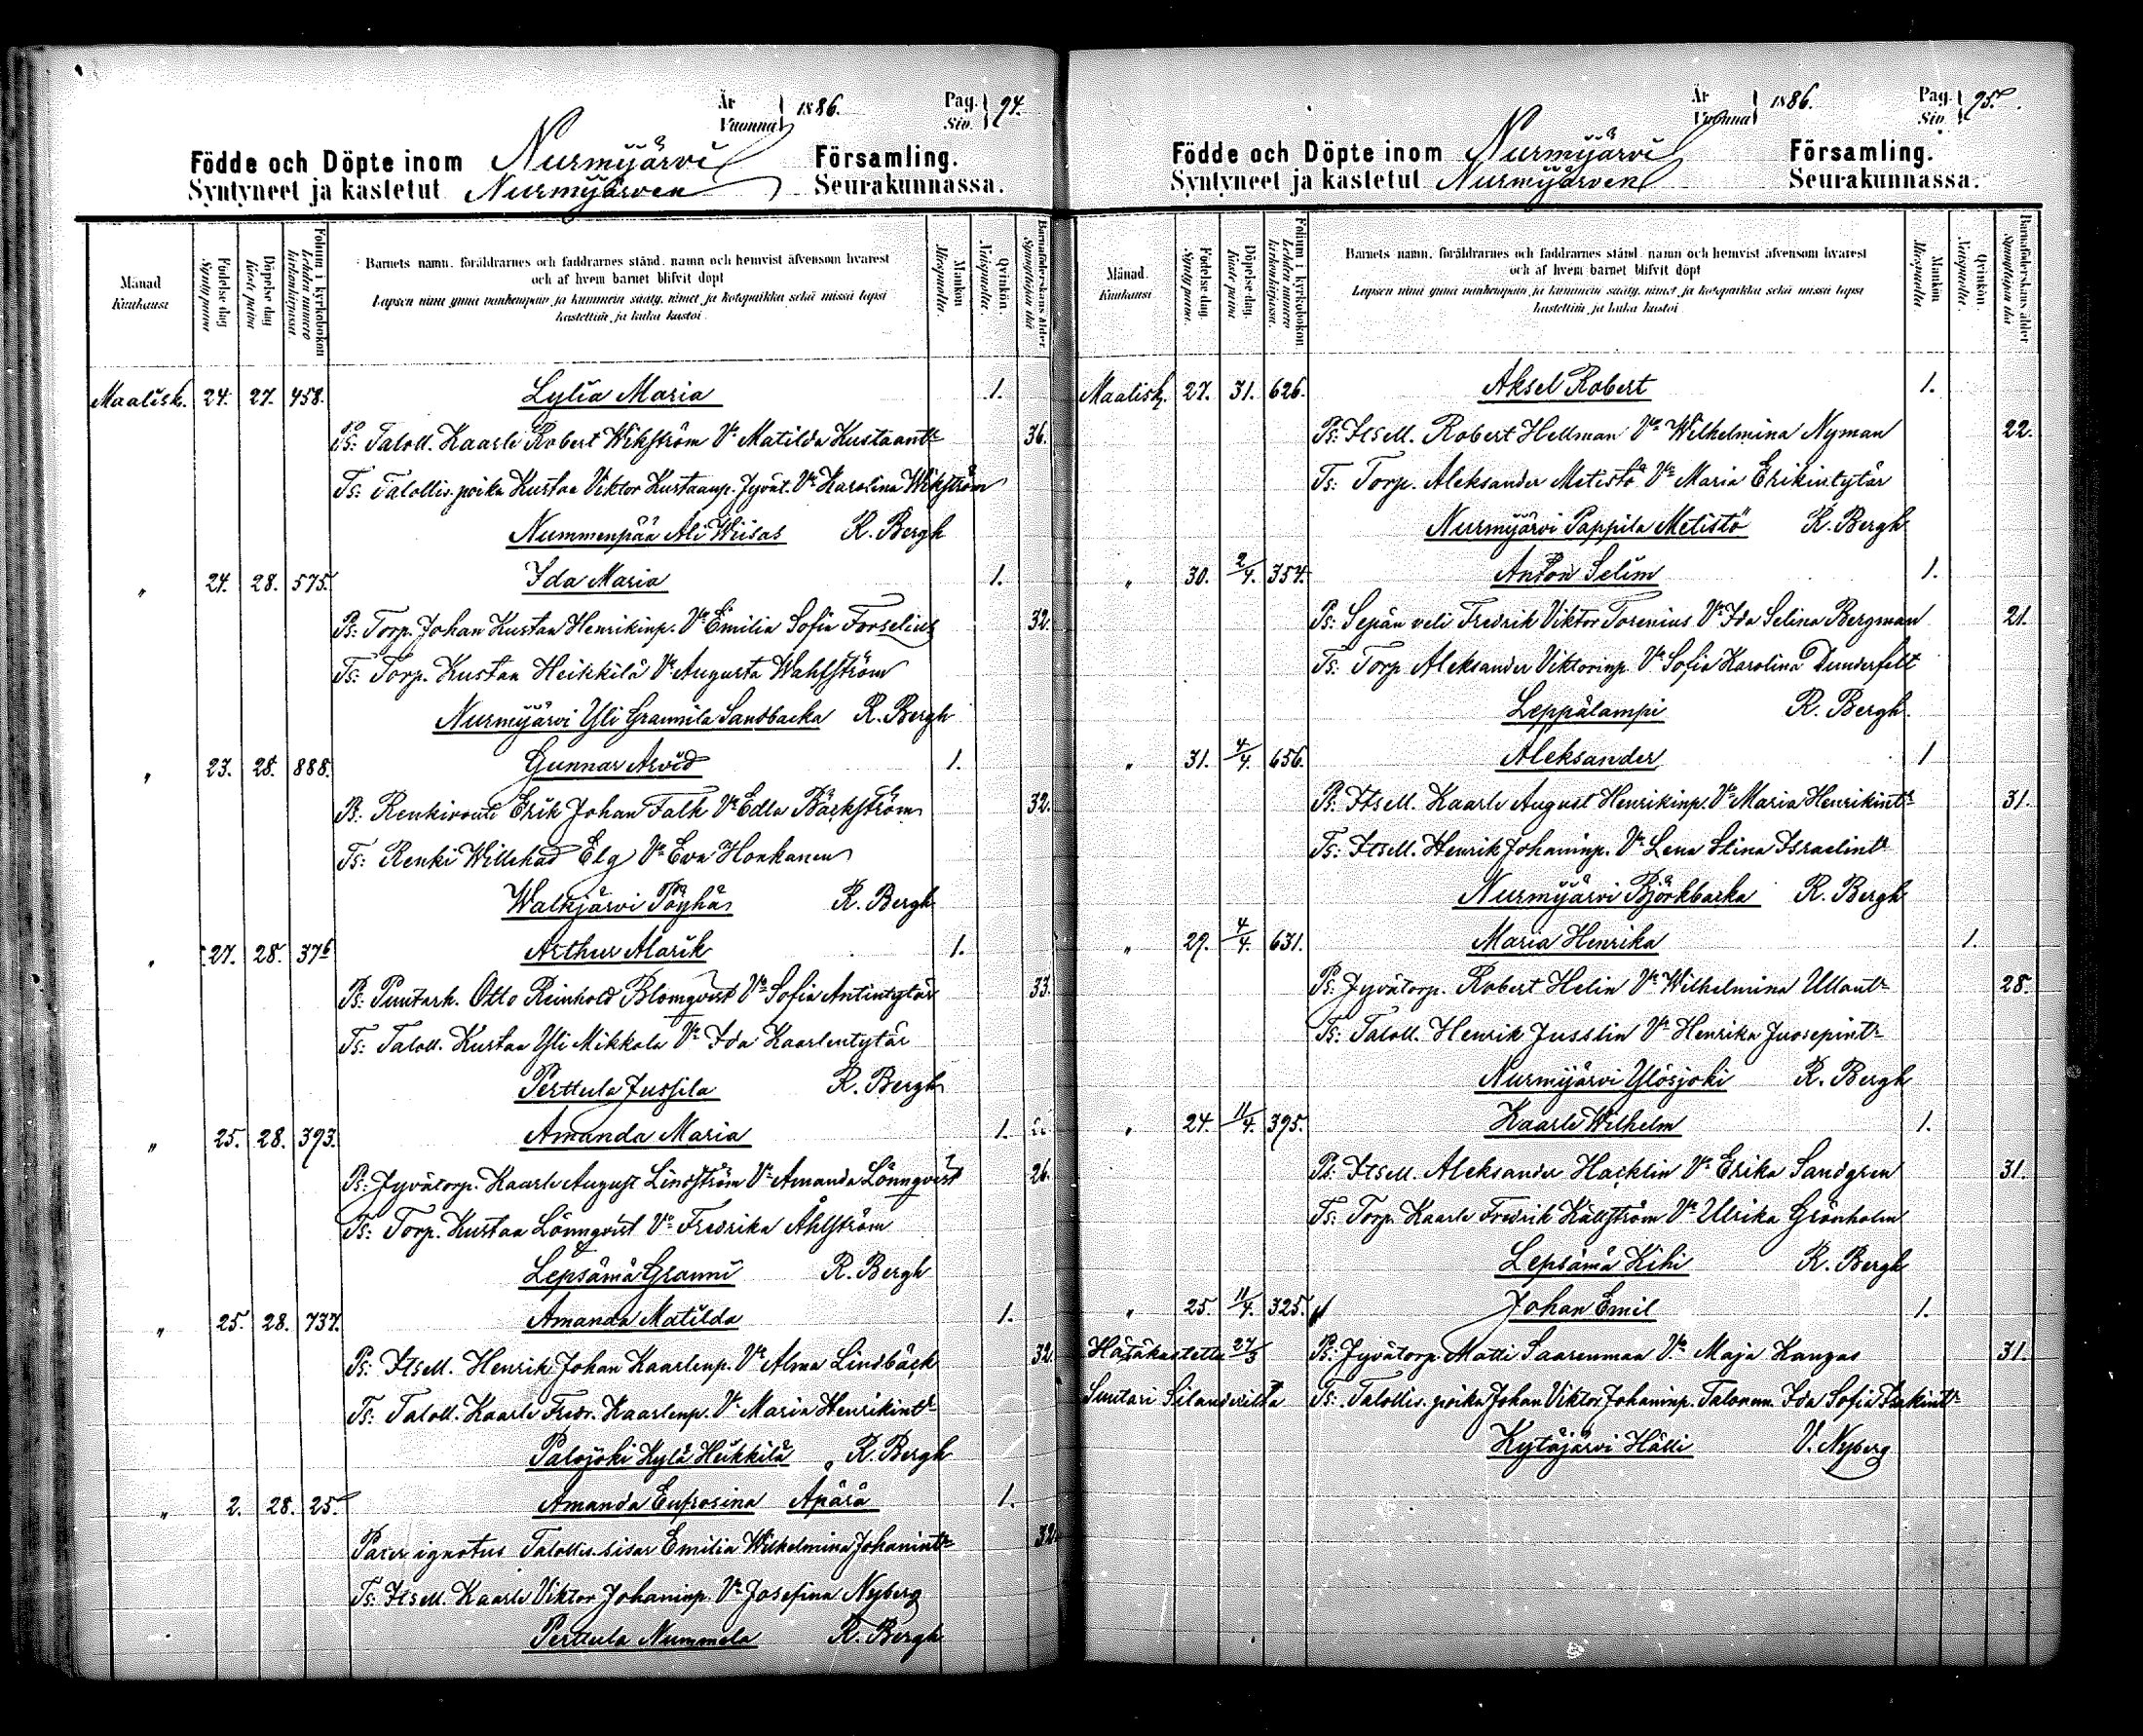 År
Vuonna 1886. Pag. Siv. 94.
Födde och Döpte inom Nurmijärvi Församling.
Syntyneet ja kastetut Nurmijärven Seurakunnassa.
Månad Kuukausi
Födelse dag Synty päivä
Döpelse dag Kaste päivä
Folium i kyrkoboken Lehden numero kirkonkirjassa
Barnets namn, föräldrarnes och faddrarnes stånd, namn och hemvist äfvensom hvarest
och af hvem barnet blifvit döpt
Lapsen nimi ynnä vanhempain ja kummein sääty, nimet ja kotopaikka sekä missä lapsi
kastettiin ja kuka kastoi
Mankön Miespuolta
Qvinkön. Naispuolta.
Barnaföderskans ålder. Synnyttäjän ikä
Maalisk. 24. 27. 458. Lylia Maria 1.
Ps: Taloll. Kaarle Robert Wikström Vo Matilda Kustaantr 36.
Ts: Talollis. poika Kustaa Viktor Kustaanp. Jyvät. Vo Karolina Wikström
Nummenpää Ali Wiisas R. Bergh
" 24. 28. 575. Ida Maria 1.
Ps: Torp. Johan Kustaa Henrikinp. Vo Emilia Sofia Forselius 32.
Ts: Torp. Kustaa Heikkilä Vo Augusta Wahlström
Nurmijärvi Yli Grannila Sandbacka R. Bergh
" 23. 28. 888. Gunnar Arvid 1.
Ps. Renkivouti Erik Johan Falk Vo Edla Bäckström 32.
Ts: Renki Willehad Elg Vo Eva Honkanen
Walkjärvi Pöyhäs R. Bergh
" 27. 28. 376 Arthur Alarik 1.
Ps: Puutarh. Otto Reinhold Blomqvist Vo Sofia Antintytär 33.
Ts: Taloll. Kustaa Yli Mikkola Vo Ida Kaarlentytär
Perttula Jussila R. Bergh
" 25. 28. 393. Amanda Maria 1.
Ps: Jyvätorp. Kaarle August Lindström Vo Amanda Lönnqvist 26.
Ts: Torp. Kustaa Lönnqvist Vo Fredrika Åhlström
Lepsämä Granni R. Bergh
" 25. 28. 737. Amanda Matilda 1.
Ps: Itsell. Henrik Johan Kaarlenp. Vo Alma Lindbäck 32.
Ts: Taloll. Kaarle Fredr. Kaarlenp. Vo Maria Henrikintr
Palojoki Kylä Heikkilä R. Bergh
" 2. 28. 25. Amanda Eufrosina Apärä 1.
Pater ignotus Talollis. sisar Emilia Wilhelmina Johanintr 32.
Ts: Itsell. Kaarle Viktor Johaninp. Vo Josefina Nyberg
Perttula Nummela R. Bergh
År
Vuonna 1886. Pag. Siv. 95.
Födde och Döpte inom Nurmijärvi Församling.
Syntyneet ja kastetut Nurmijärven Seurakunnassa.
Månad. Kuukausi
Födelse dag. Synty päivä.
Döpelse dag. Kaste päivä
Folium i kyrkoboken. Lehden numero kirkonkirjassa.
Barnets namn, föräldrarnes och faddrarnes stånd, namn och hemvist äfvensom hvarest
och af hvem barnet blifvit döpt
Lapsen nimi ynnä vanhempain ja kummein sääty, nimet ja kotopaikka sekä missä lapsi
kastettiin ja kuka kastoi
Mankön Miespuolta
Qvinkön. Naispuolta.
Barnaföderskans ålder Synnyttäjän ikä
Maalisk. 27. 31. 626. Aksel Robert 1.
Ps: Itsell. Robert Hellman Vo Wilhelmina Nyman 22.
Ts: Torp. Aleksander Metistö Vo Maria Erikintytär
Nurmijärvi Pappila Metistö R. Bergh
" 30. 2/4. 354. Anton Selim 1.
Ps: Sepän veli Fredrik Viktor Torenius Vo Ida Selina Bergman 21.
Ts: Torp Aleksander Viktorinp. Vo Sofia Karolina Dunderfelt
Leppälampi R. Bergh.
" 31. 4/4. 656. Aleksander 1
Ps: Itsell. Kaarle August Henrikinp. Vo Maria Henrikintr 31.
Ts: Itsell. Henrik Johaninp. Vo Lena Stina Israelintr
Nurmijärvi Björkbacka R. Bergh
" 29. 4/4. 631. Maria Henrika 1.
Ps: Jyvätorp. Robert Helin Vo Wilhelmina Ullantr 28.
Ts: Taloll. Henrik Jusslin Vo Henrika Juosepintr
Nurmijärvi Ylösjoki R. Bergh
" 24. 11/4. 395. Kaarle Wilhelm 1.
Ps: Itsell. Aleksander Hacklin Vo Erika Sandgren 31.
Ts: Torp. Kaarle Fredrik Källström Vo Ulrika Grönholm
Lepsämä Kihi R. Bergh
" 25. 11/4. 325. Johan Emil 1.
Hätäkastettu 27/3 Ps: Jyvätorp. Matti Saarenmaa Vo Maja Kangas 31.
Suutari Silanderilta Ts: Talollis. poika Johan Viktor Johaninp. Talonem. Ida Sofia Isakintr
Kytäjärvi Hälli V. Nyberg